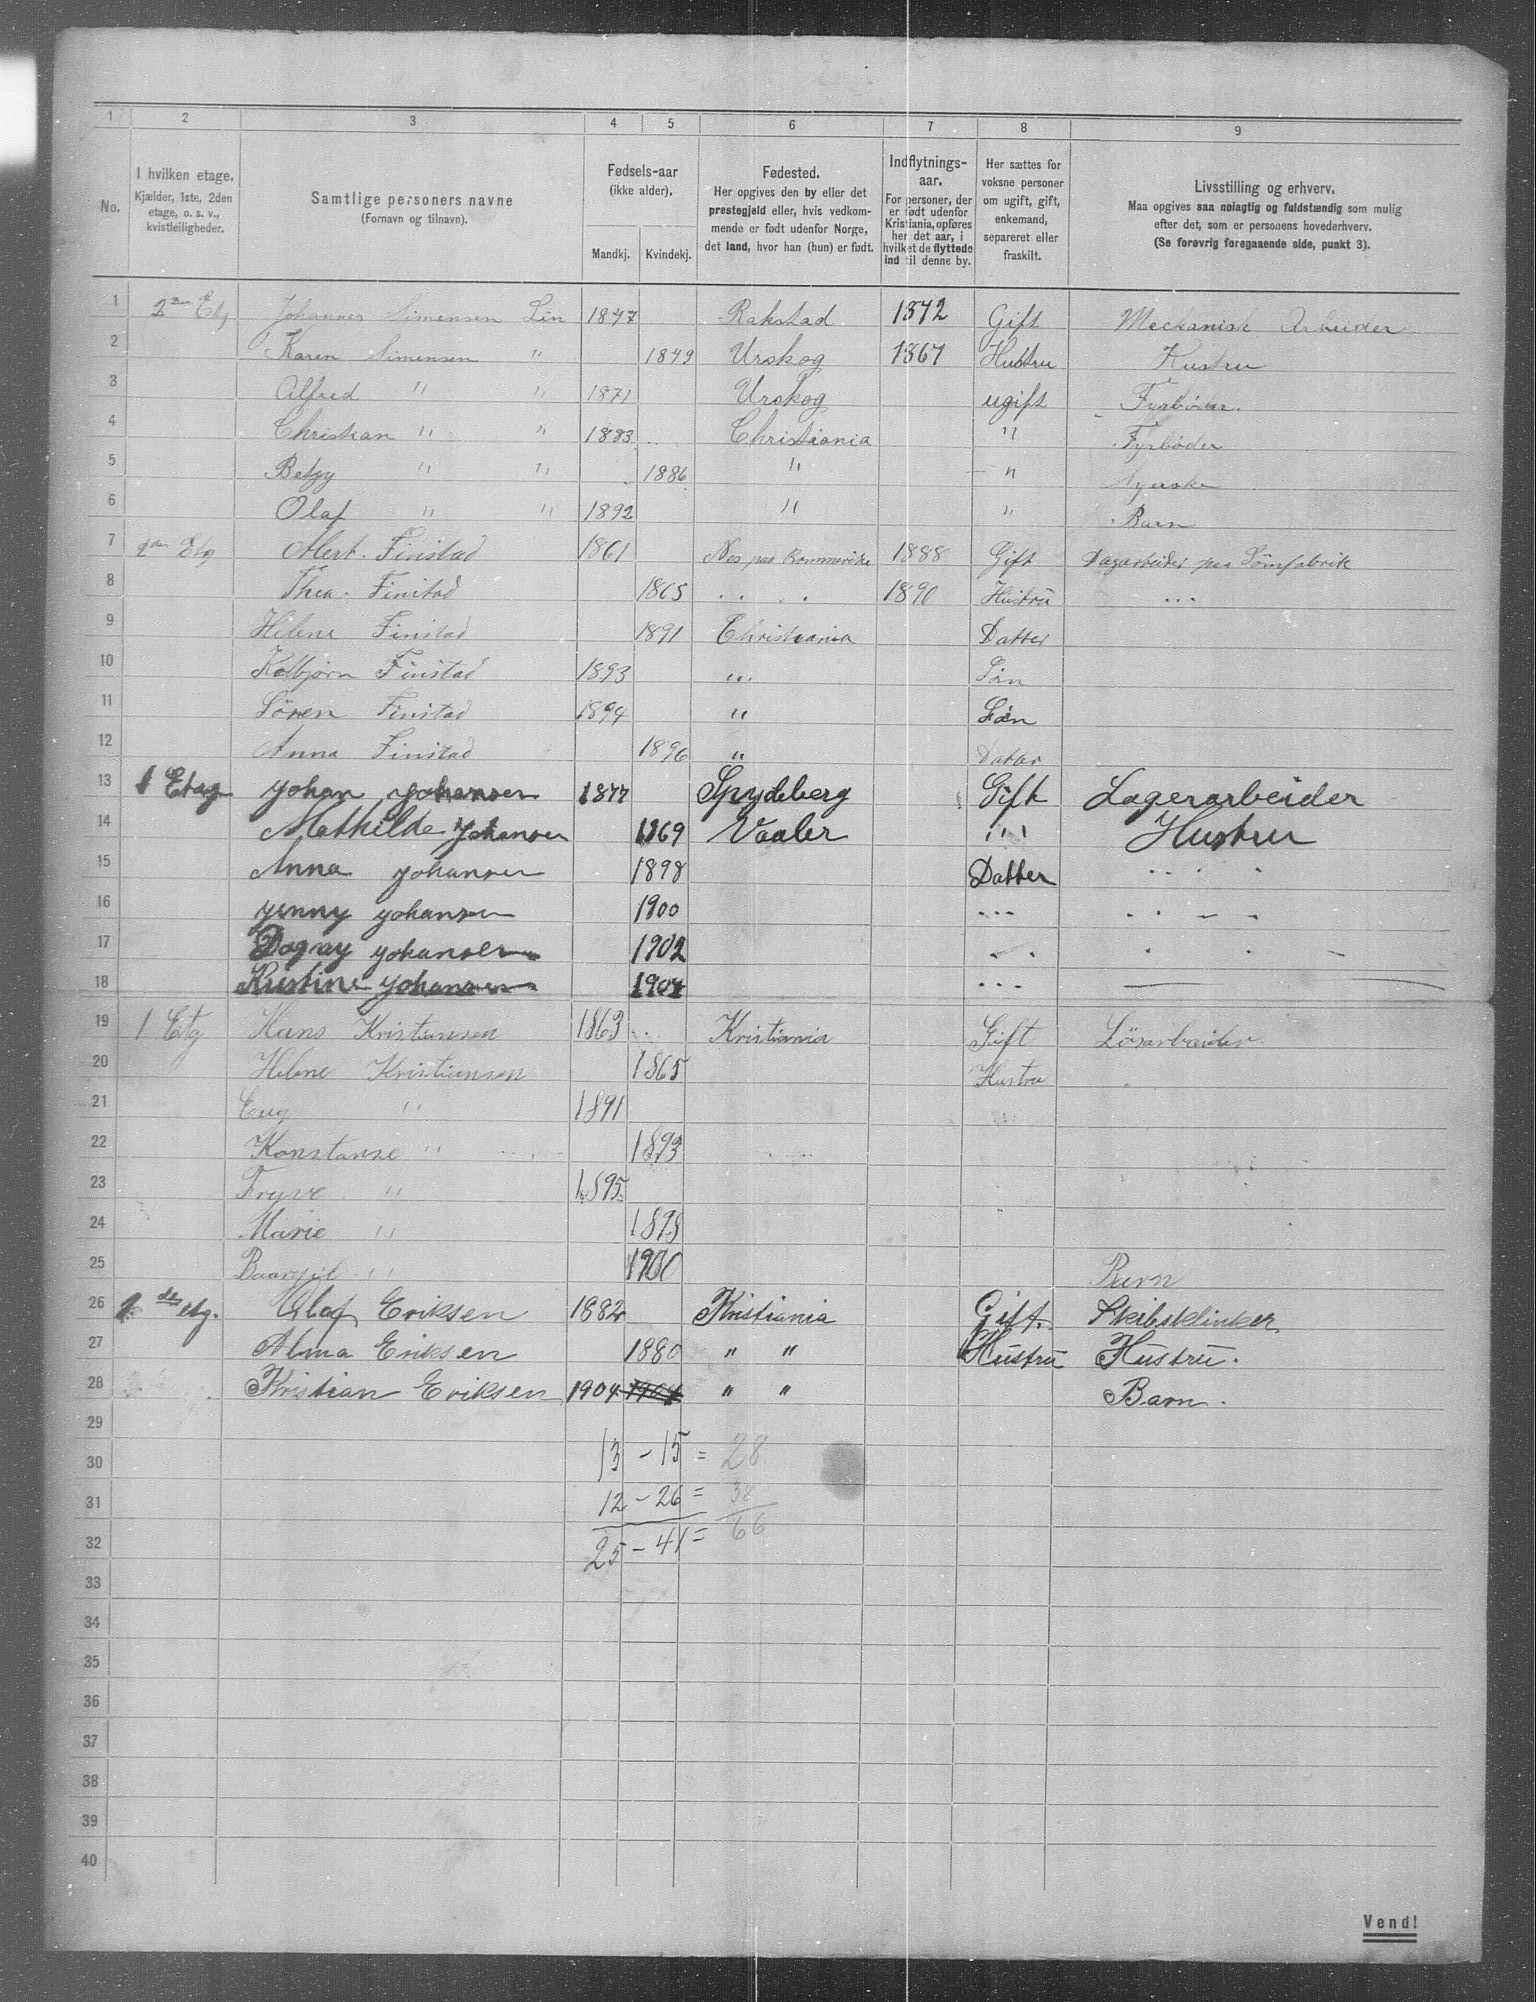 1 2 3 4 5 6 7 8 9
No.
I hvilken etage.
Kjælder, 1ste, 2den
etage, o. s. v.,
kvistleiligheder.
Samtlige personers navne
(Fornavn og tilnavn).
Fødsels-aar
(ikke alder).
Mandkj. Kvindekj.
Fødested.
Her opgives den by eller det
prestegjeld eller, hvis vedkom-
mende er født udenfor Norge,
det land, hvor han (hun) er født.
Indflytnings-
aar.
For personer, der
er født udenfor
Kristiania, opføres
her det aar, i
hvilket de flyttede
ind til denne by.
Her sættes for
voksne personer
om ugift, gift,
enkemand,
separeret eller
fraskilt.
Livsstilling og erhverv.
Maa opgives saa nøiagtig og fuldstændig som mulig
efter det, som er personens hovederhverv.
(Se forøvrig foregaaende side, punkt 3).
1 2den Etg Johannes Simensen Lin 1847 Rakstad 1872 Gift Mechanisk Arbeider
2 Karen Simensen " 1849 Urskog 1867 Hustru Hustru
3 Alfred " " 1871 Urskog ugift Fyrbøder.
4 Christian " " 1883 Christiania " Fyrbøder
5 Betzy " " 1886 " " Syerske
6 Olaf " " 1892 " " Barn
7 Etg Albert. Finstad 1861 Nes paa Romerike 1888 Gift Dagarbeider paa Sömfabrik
8 Thea. Finstad 1865 . . . 1890 Hustru ...
9 Helene Finstad 1891 Christiania Datter
10 Kolbjørn Finstad 1893 " Sön
11 Sören Finstad 1894 " Sön
12 Anna Finstad 1896 " Datter
13 1 Etag Johan Johansen 1877 Spydeberg Gift Lagerarbeider
14 Mathilde Johansen 1869 Vaaler " Hustru
15 Anna Johansen 1898 Datter . . . .
16 Jenny Johansen 1900 ... . . – –
17 Dagny Johansen 1902 . . . . . –
18 Kristine Johansen 1904 ... —
19 1 Etg Hans Kristiansen 1863 Kristiania Gift Lösarbeider
20 Helene Kristiansen 1865 Hustru
21 " 1891
22 Konstanse " 1893
23 Tryve " 1895
24 Marie " 1898
25 " 1900 Barn
26 2 etg. Olaf Eriksen 1882 Kristiania Gift. Skibsklinker
27 Alma Eriksen 1880 " " Hustru Hustru.
28 Kristian Eriksen 1904 1904 " " Barn.
29
30 13 – 15 = 28
31 12 – 26 = 38
32 25 – 41 = 66
33
34
35
36
37
38
39
40
Vend!